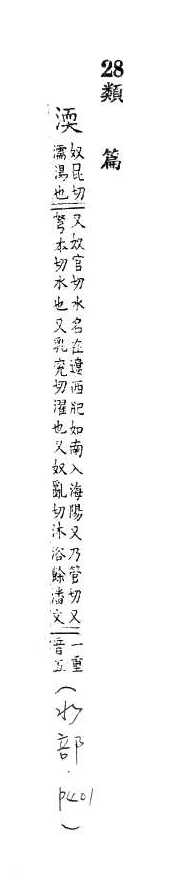 28類篇
渜
奴昆切又奴官切水名在遼西肥如南入海陽又乃管切又
濡湯也弩本切水也又乳兗切濯也又奴亂切沐浴餘潘文
一重
音五
(水部.p401)